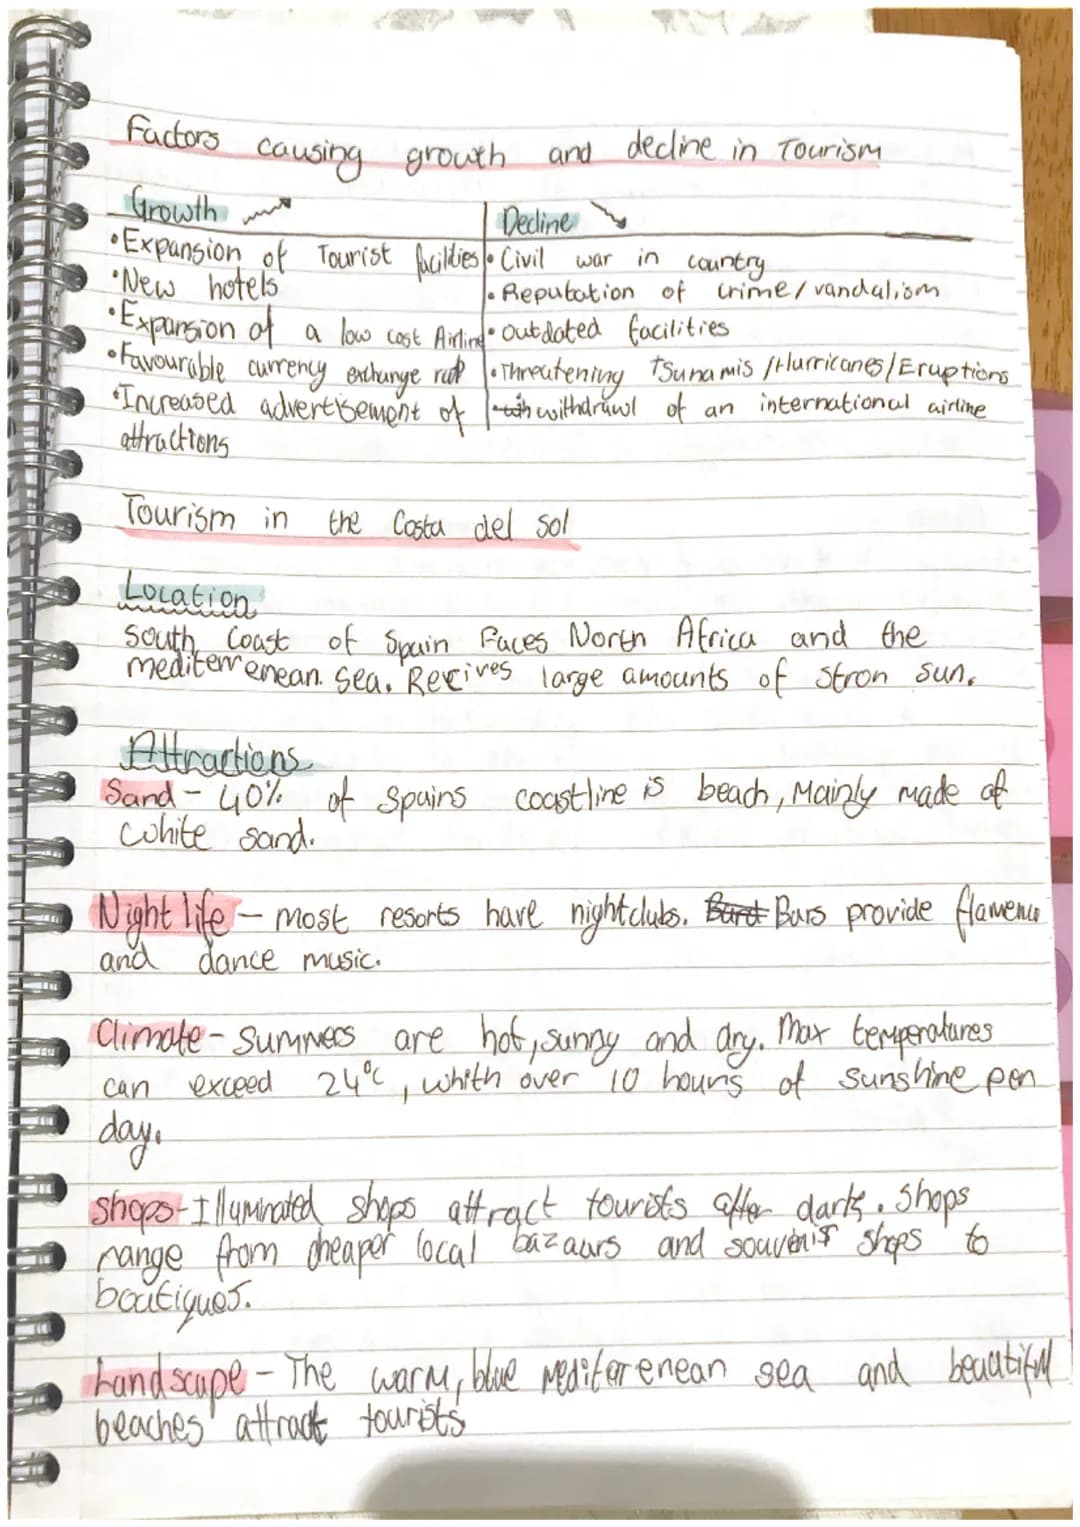 Factors causing growth and decline in Tourism
Growth
•Expansion of Tourist facilities
•New hotels
•Expansion of a low cost Airline
•Favourable currency exchange rate
•Increased advertisement of
attractions
Decline
• Civil war in country
• Reputation of crime/vandalism
• outdated facilities
•Threatening Tsunamis/Hurricanes/Eruptions
• withdrawl of an international airline
Tourism in the Costa del Sol
Location
South Coast of Spain Faces North Africa and the
mediterrenean. Sea. Recives large amounts of stron sun.
Attractions
Sand - 40% of Spains coastline is beach, Mainly made of
white sand.
Night life - most resorts have nightclubs. Bars provide flamenco
and dance music.
Climate - Summers are hot, sunny and dry. Max temperatures
can exceed 24°c, whith over 10 hours of sunshine per
day.
Shops - Illuminated shops attract tourists after dark. Shops
range from cheaper local bazaars and souvenir shops to
boutiques.
Landscape - The warm, blue Mediterenean sea and beauatiful
beaches attract tourists